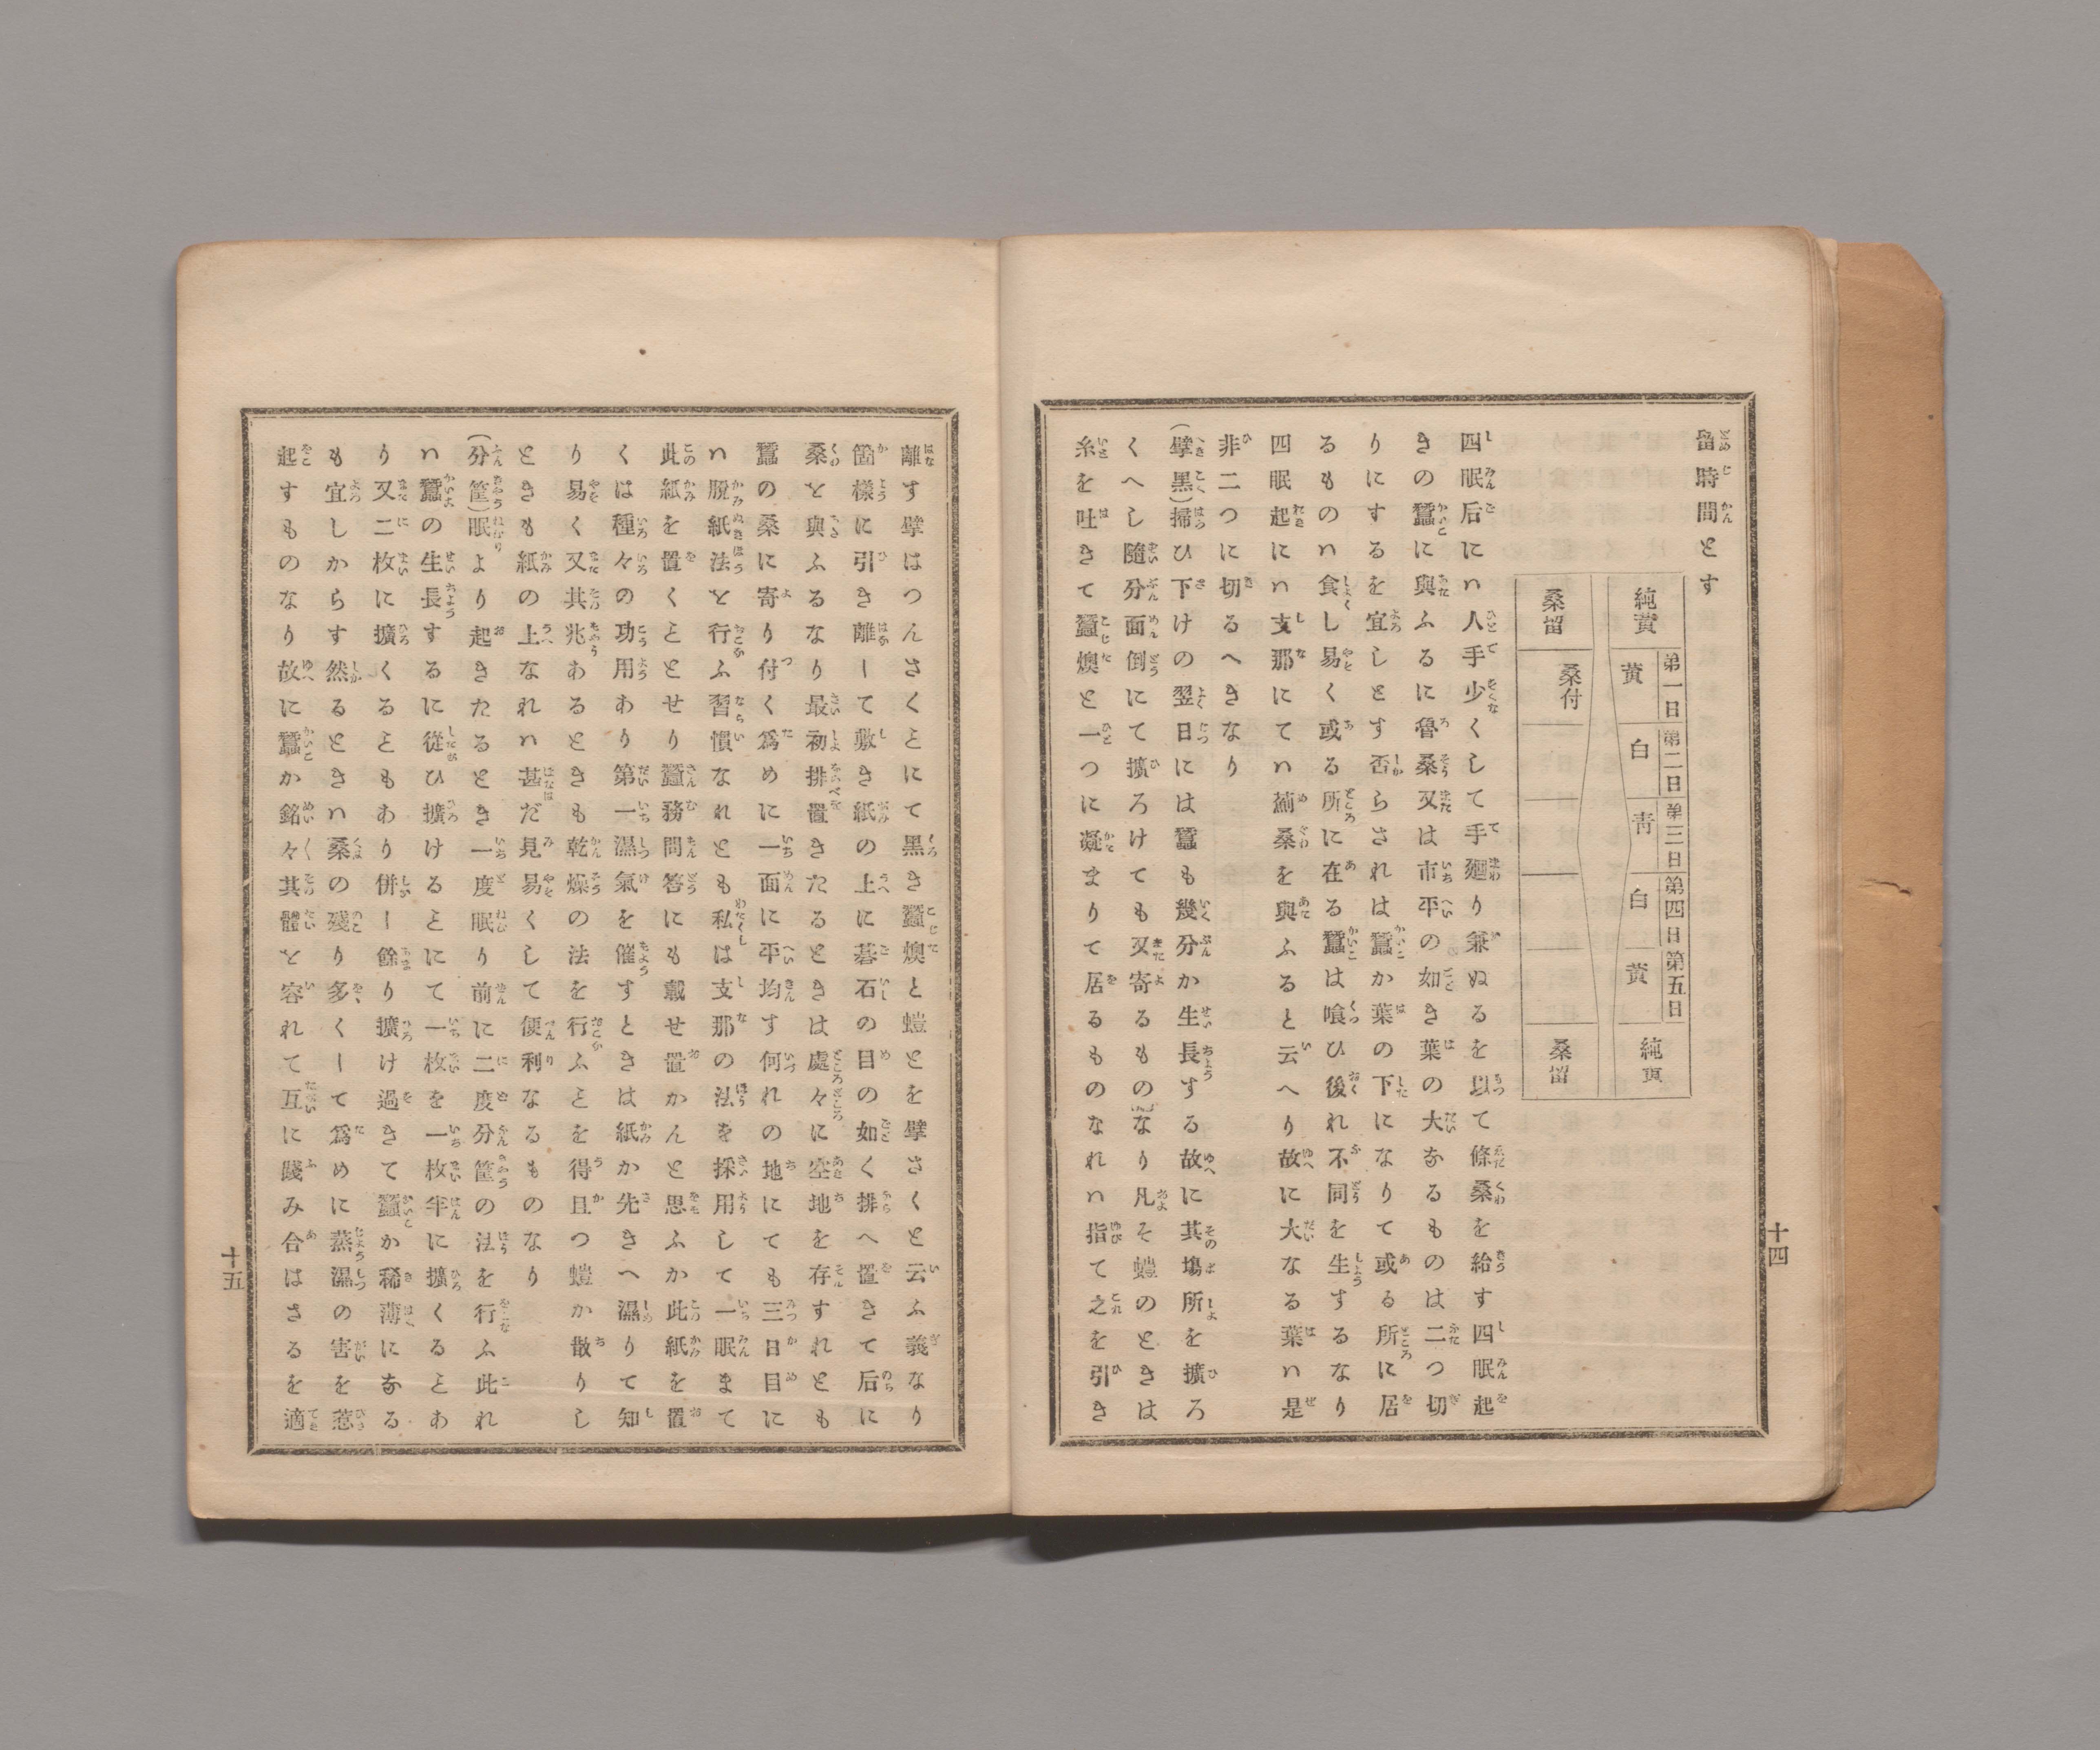 留時間とす
第一日 第二日 第三日 第四日 第五日
純黄 黄 白 靑 白 黄 純
桑留 桑付 桑留
四眠后にハ人手少くして手廻り兼ぬるを以て條桑を給す四眠起
きの蠶に與ふるに魯桑又は市平の如き葉の大なるものは二つ切
りにするを宜しとす否らされは蠶か葉の下になりて或る所に居
るものハ食し易く或る所に在る蠶は喰ひ後れ不同を生するなり
四眠起にハ支那にてハ桑を與ふると云へり故に大なる葉ハ是
非二つに切るへきなり
(擘黑)掃ひ下けの翌日には蠶も幾分か生長する故に其塲所を擴ろ
くへし隨分面倒にて擴ろけても又寄るものなり凡そ螘のときは
糸を吐きて蠶燠と一つに凝まりて居るものなれハ指て之を引き
十四
離す擘はつんさくとにて黑き蠶燠と螘とを擘さくと云ふ義なり
箇樣に引き離して敷き紙の上に碁石の目の如く排へ置きて后に
桑と與ふるなり最初排置きたるときは處々に空地を存すれとも
蠶の桑に寄り付く爲めに一面に平均す何れの地にても三日目に
ハ脫紙法と行ふ習慣なれとも私は支那の法を採用して一眠まて
此紙を置くとせり蠶務問答にも戴せ置かんと思ふか此紙を置
くは種々の功用あり第一濕氣を催すときは紙か先きへ濕りて知
り易く又其兆あるときも乾燥の法を行ふとを得且つ螘か散りし
ときも紙の上なれハ甚だ見易くして便利なるものなり
(分筐)眠より起きたるとき一度眠り前に二度分筐の法を行ふ此れ
ハ蠶の生長するに從ひ擴けるとにて一枚を一枚半に擴くるとあ
り又二枚に擴くるともあり併し餘り擴け過きて蠶か稀薄になる
も宜しからす然るときハ桑の殘り多くして爲めに蒸濕の害を惹
起すものなり故に蠶か銘々其體と容れて互に踐み合はさるを適
十五